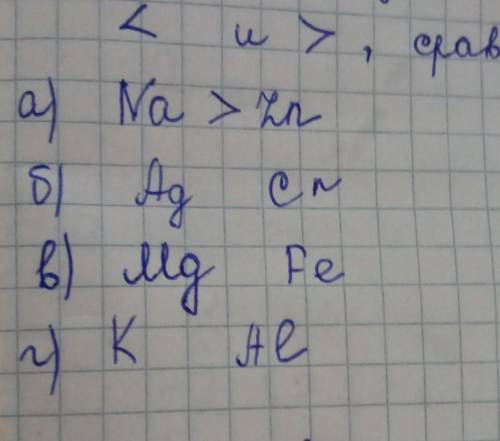 < и >, срав
а) Na > Zn
б) Ag Cr
в) Mg Fe
г) K Al